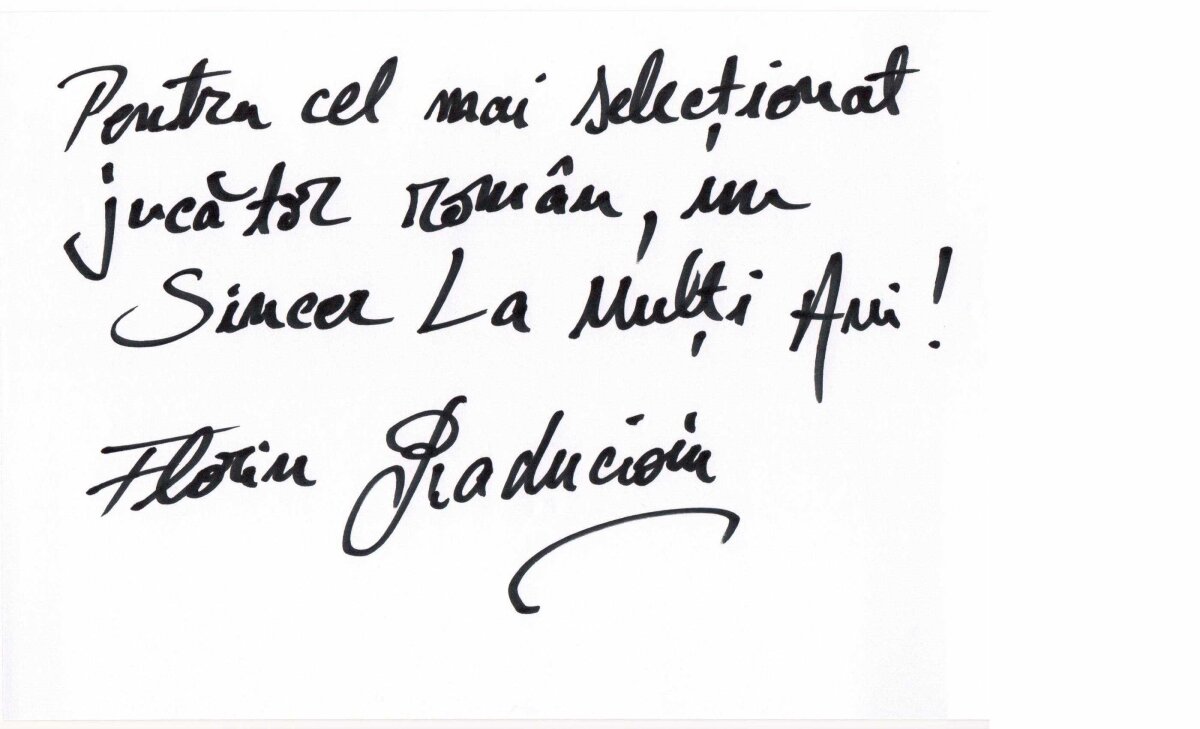 Pentru cel mai selecționat
jucător român, un
Sincer La Mulți Ani!
Florin Răducioiu